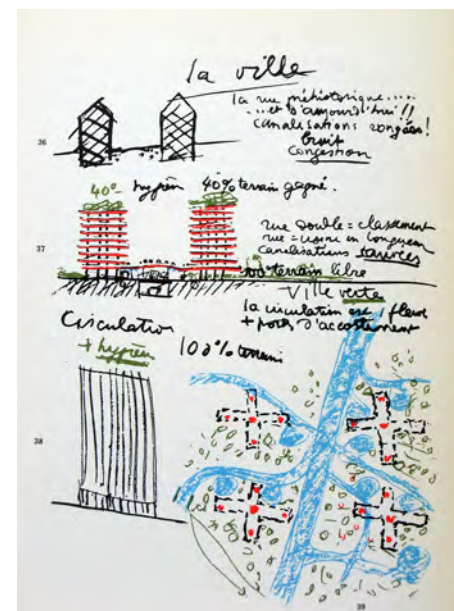 la ville
la rue préhistorique.....
...et d'aujourd'hui!!
canalisations rongées!
bruit
congestion
36
40% terrain gagné.
37
rue double = classement
rue = usine en longueur
canalisations sauvées
terrain libre
Ville verte
la circulation est 1 fleuve
+ ports d'accostement
Circulation
100% terrain
38
39